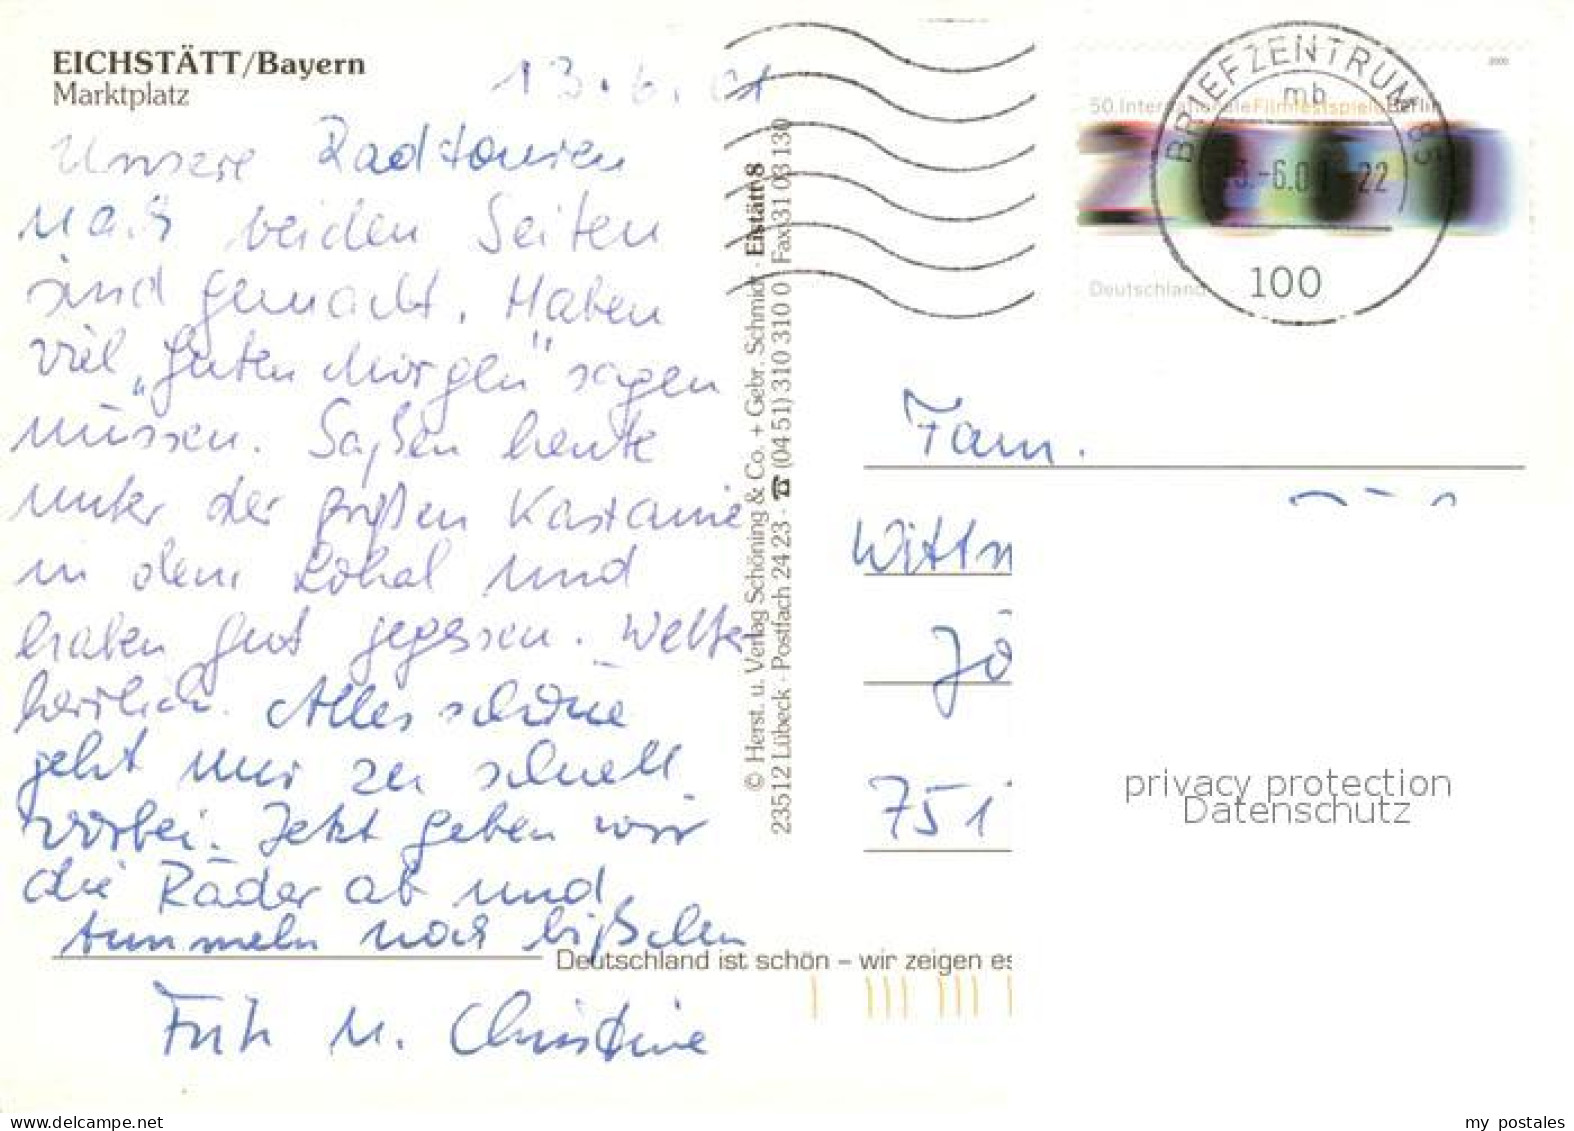 EICHSTÄTT/Bayern
Marktplatz
13.6.01
Unsere Radtouren
nach beiden Seiten
sind gemacht. Haben
viel „Guten Morgen" sagen
müssen. Saßen heute
unter der großen Kastanie
in dem Lokal und
haben gut gegessen. Wetter
herrlich. Alles schöne
geht nur zu schnell
vorbei. Jetzt geben wir
die Räder ab und
tummeln noch bißchen
Fritz u. Christine
Deutschland ist schön – wir zeigen es
© Herst. u. Verlag Schöning & Co. + Gebr. Schmidt · Eistätt 8
23512 Lübeck · Postfach 24 23 · ☎ (04 51) 310 310 0 Fax 31 03 130
BRIEFZENTRUM 85
mb
-6.0 -22
50. Internationale Filmfestspiele Berlin
2000
Deutschland
100
Fam.
Wittm
Jö
751
privacy protection
Datenschutz
my postales